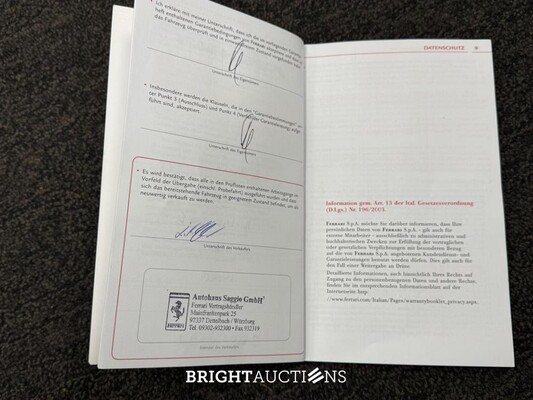 • Ich erkläre mit meiner Unterschrift, dass ich die im vorliegenden Garantie-
heft enthaltenen Garantiebedingungen von FERRARI akzeptiere und dass ich
das Fahrzeug überprüft und in einwandfreiem Zustand vorgefunden habe.
Unterschrift des Eigentümers
• Insbesondere werden die Klauseln, die in den "Garantiebestimmungen" un-
ter Punkt 3 (Ausschluss) und Punkt 4 (Verfall der Garantieleistung) aufge-
führt sind, akzeptiert.
Unterschrift des Eigentümers
• Es wird bestätigt, dass alle in den Prüflisten enthaltenen Arbeitsgänge im
Vorfeld der Übergabe (einschl. Probefahrt) ausgeführt wurden und dass
sich das bereitstehende Fahrzeug in geeignetem Zustand befindet, um als
neuwertig verkauft zu werden.
Unterschrift des Verkäufers
FERRARI
Autohaus Saggio GmbH
Ferrari Vertragshändler
Mainfrankenpark 25
97337 Dettelbach / Würzburg
Tel. 09302-932300 • Fax 932319
Stempel des Verkäufers
DATENSCHUTZ 9
Information gem. Art. 13 der Ital. Gesetzesverordnung
(D.Lgs.) Nr. 196/2003.
FERRARI S.p.A. möchte Sie darüber informieren, dass Ihre
persönlichen Daten von FERRARI S.p.A. - gilt auch für
externe Mitarbeiter - ausschließlich zu administrativen und
buchhalterischen Zwecken zur Erfüllung der vertraglichen
oder gesetzlichen Verpflichtungen mit besonderem Bezug
auf die von FERRARI S.p.A. angebotenen Kundendienst- und
Garantieleistungen benutzt werden dürfen. Dies gilt auch für
den Fall einer Weitergabe an Dritte.
Detaillierte Informationen, auch hinsichtlich Ihres Rechts auf
Zugang zu den personenbezogenen Daten und andere Rechte,
finden Sie im entsprechenden Informationsblatt auf der
Internetseite http:
//www.ferrari.com/Italian/Pages/warrantybooklet_privacy.aspx.
BRIGHTAUCTIONS